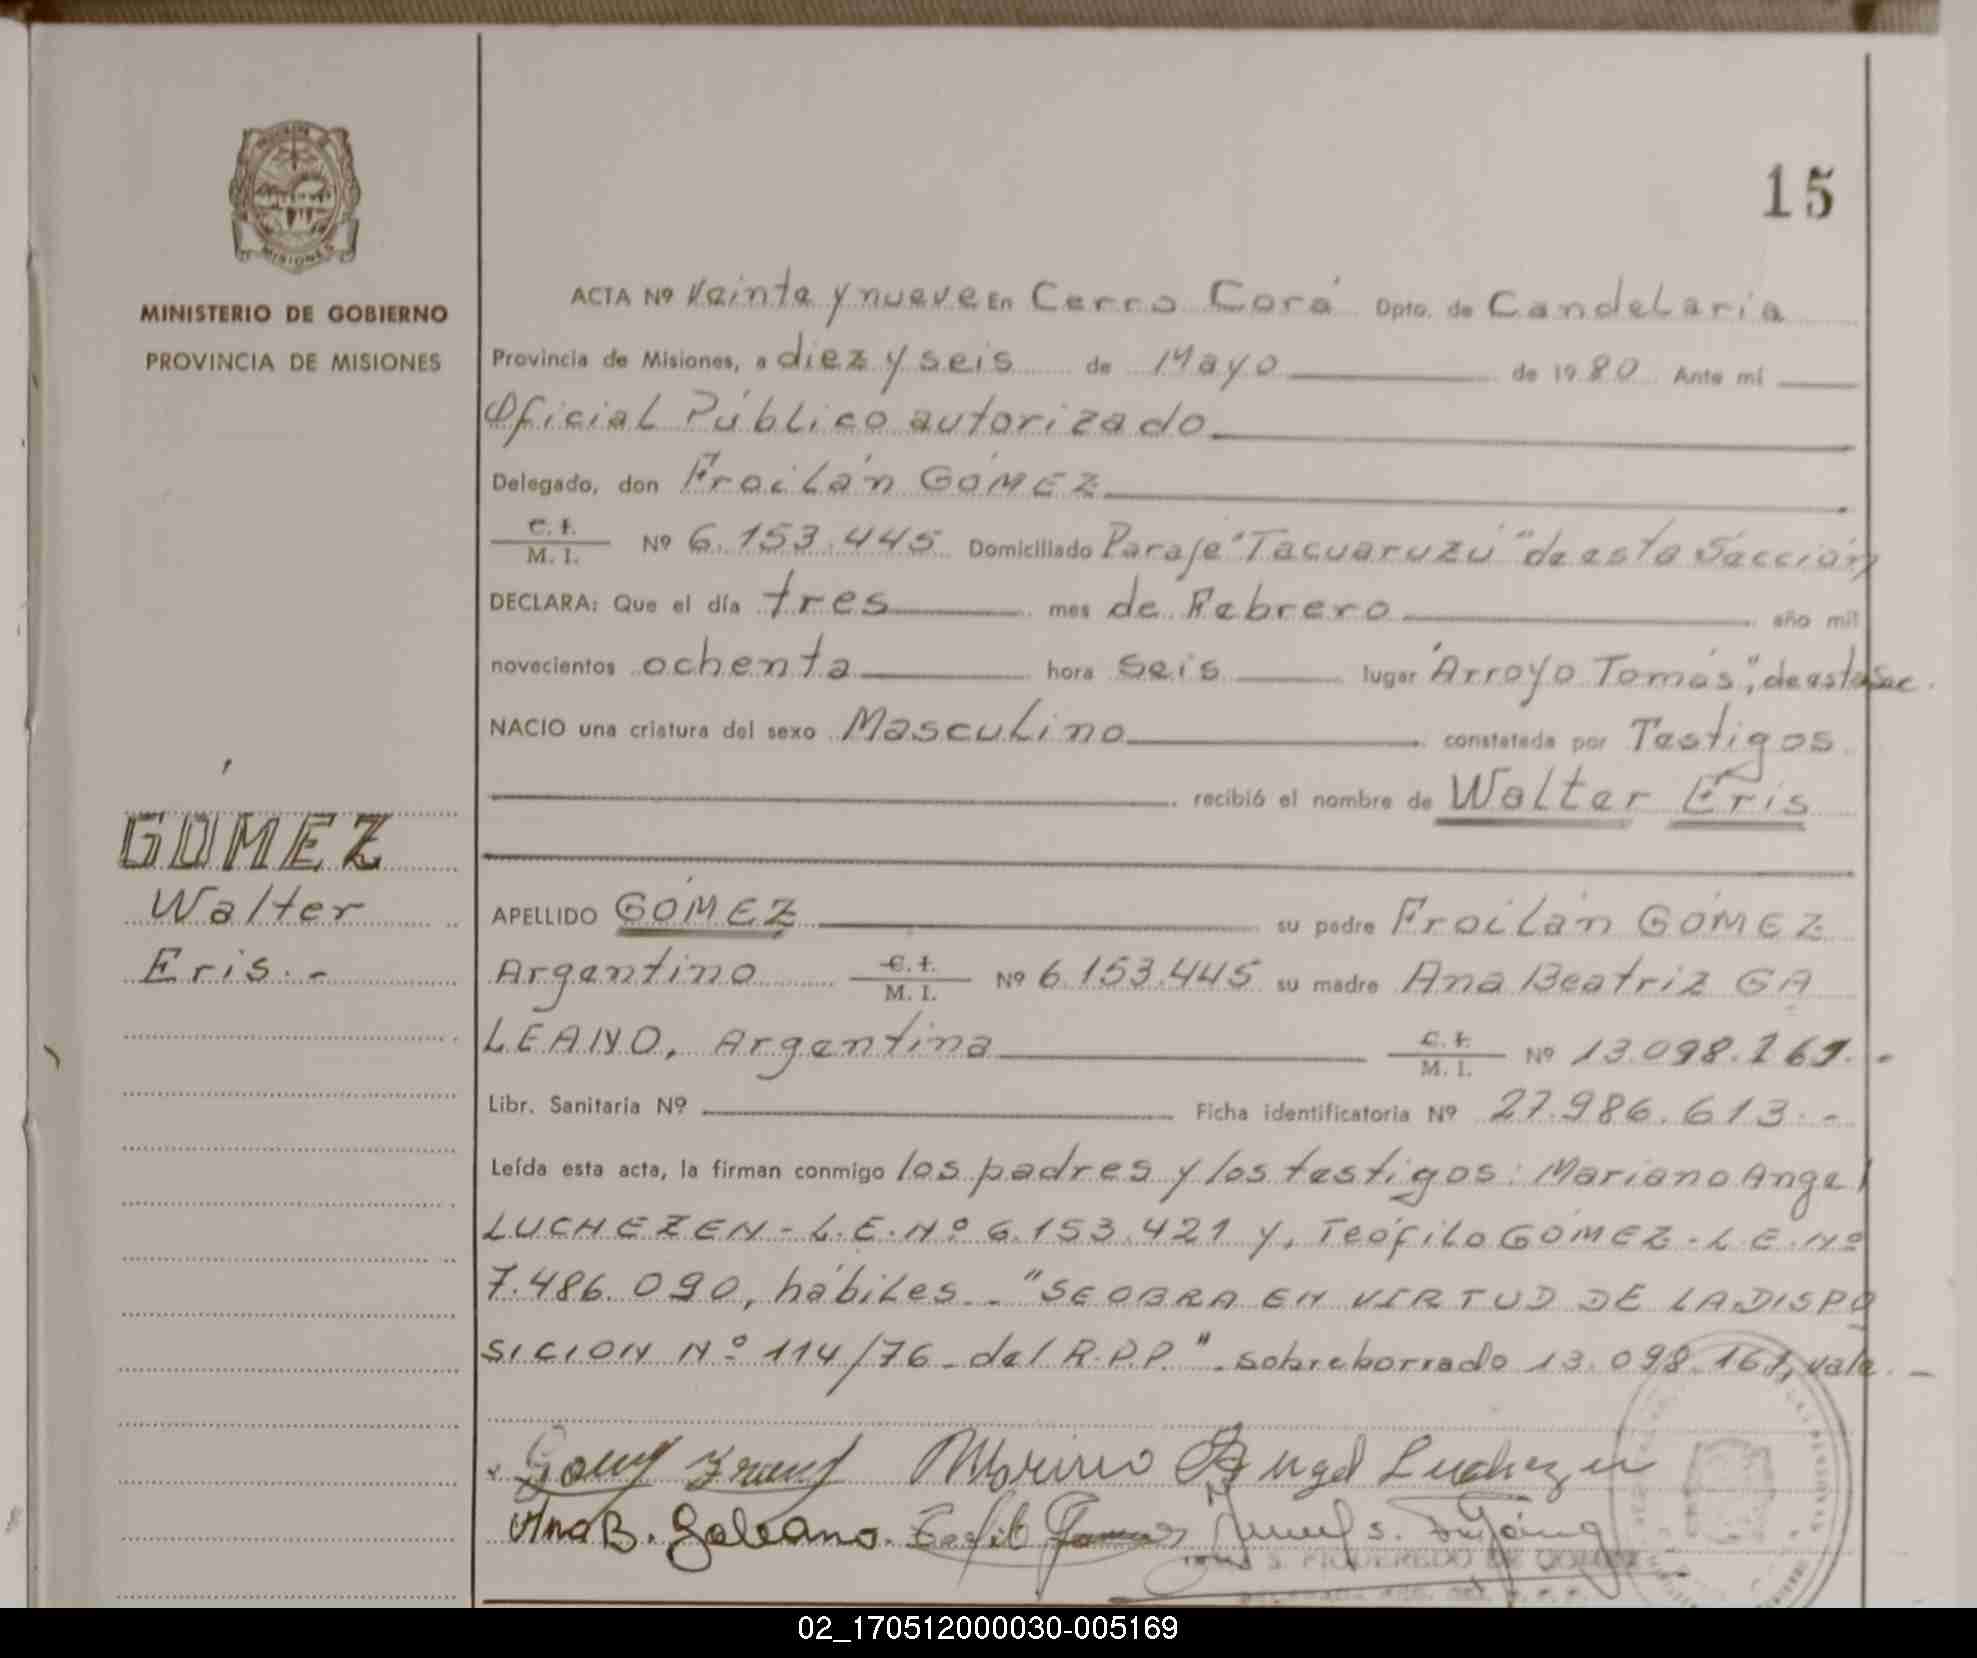 15
MISIONES
MINISTERIO DE GOBIERNO
PROVINCIA DE MISIONES
GOMEZ
Walter
Eris.-
ACTA Nº Veinte y nueve En Cerro Corá Dpto. de Candelaria
Provincia de Misiones, a diez y seis de Mayo de 1980 Ante mí
Oficial Público autorizado
Delegado, don Froilán GÓMEZ
C. I.
M. I. Nº 6.153.445 Domiciliado Paraje "Tacuaruzú" de esta Sección
DECLARA: Que el día tres mes de Febrero año mil
novecientos ochenta hora seis lugar "Arroyo Tomás", de esta Sec.
NACIO una criatura del sexo Masculino constatada por Testigos
recibió el nombre de Walter Eris
APELLIDO GÓMEZ su padre Froilán GÓMEZ
Argentino C. I.
M. I. Nº 6.153.445 su madre Ana Beatriz GA
LEANO, Argentina C. I.
M. I. Nº 13.098.161.-
Libr. Sanitaria Nº Ficha identificatoria Nº 27.986.613.-
Leída esta acta, la firman conmigo los padres y los testigos: Mariano Angel
LUCHEZEN - L.E. Nº 6.153.421 y, Teófilo GÓMEZ - L.E. Nº
7.486.090, hábiles.- "SE OBRA EN VIRTUD DE LA DISPO
SICION Nº 114/76 - del R.P.P." - sobreborrado 13.098.161, vale.-
Angel Luchezen
Ana B. Galeano.
S. FIGUEREDO DE
02_170512000030-005169